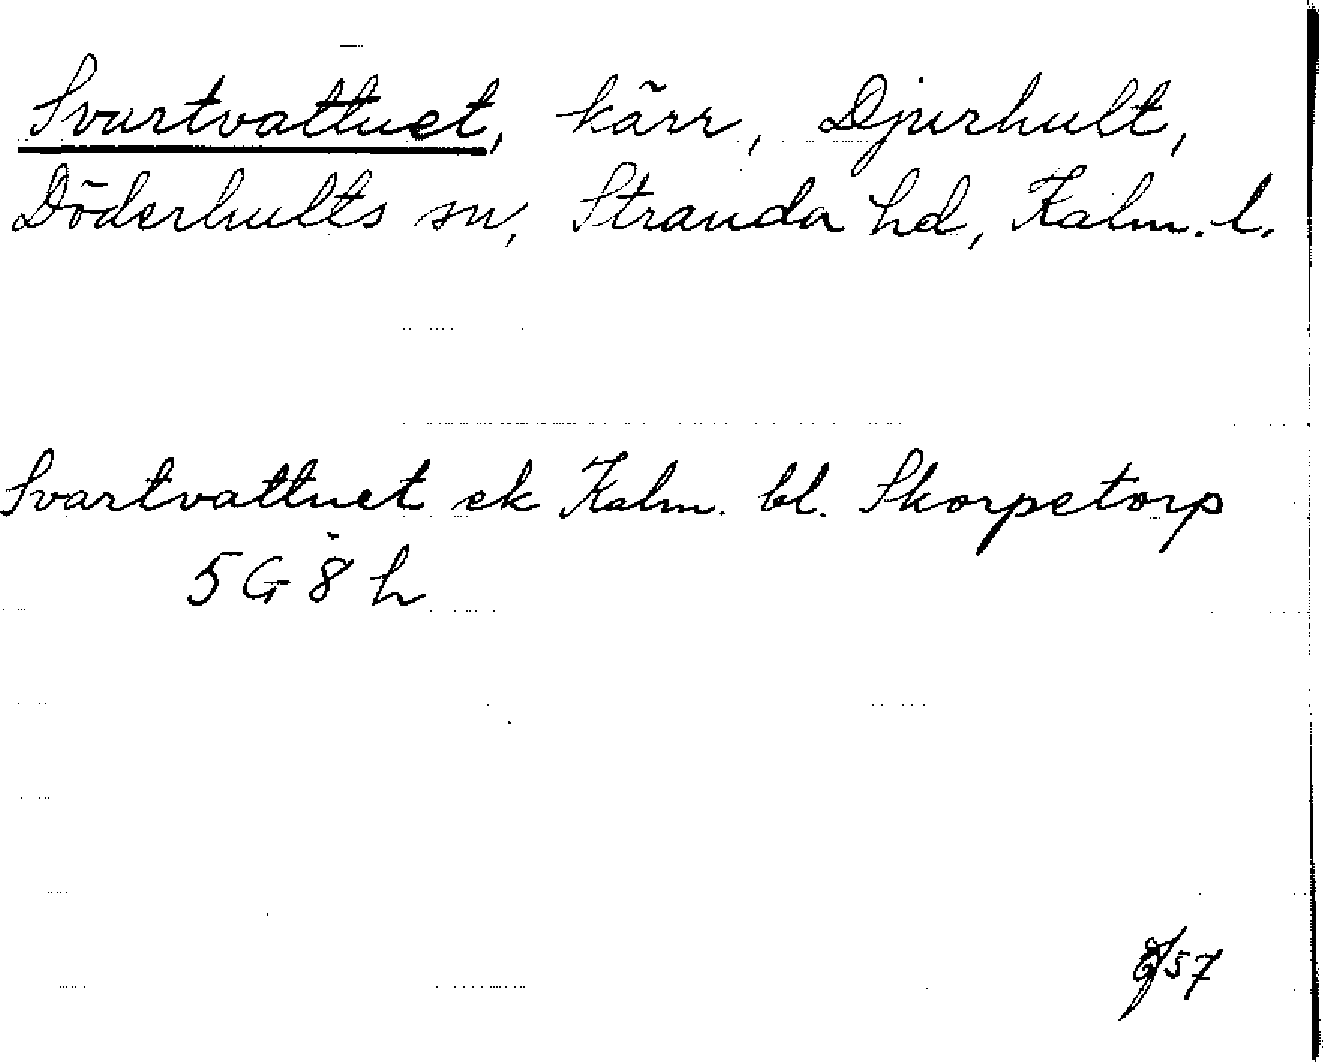 Svartvattnet, kärr, Djurhult,
Döderhults sn, Stranda hd, Kalm. l.
Svartvattnet ek Kalm. bl. Skorpetorp
5G8h
57